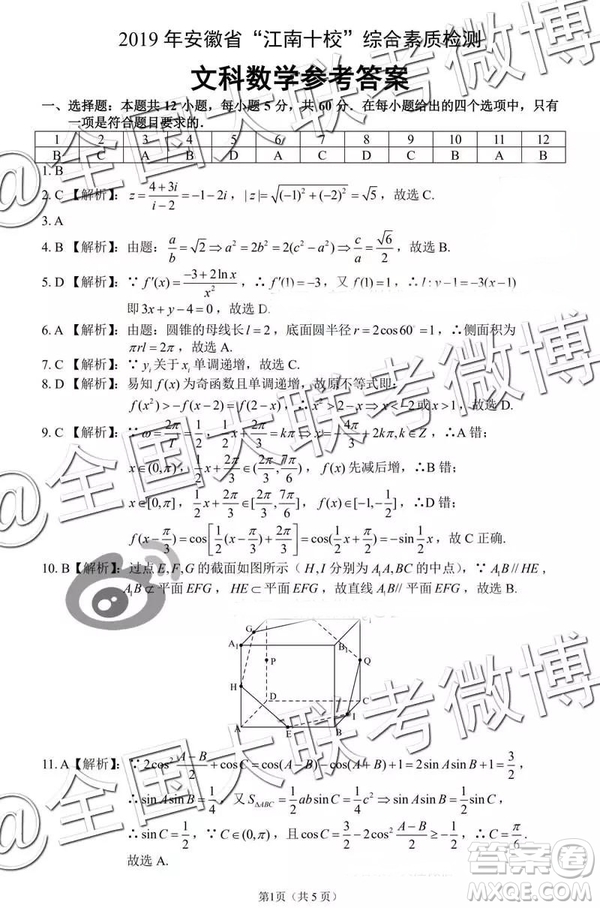 2019 年安徽省“江南十校”综合素质检测
文科数学参考答案
一、选择题：本题共 12 小题，每小题 5 分，共 60 分．在每小题给出的四个选项中，只有
一项是符合题目要求的．
1 2 3 4 5 6 7 8 9 10 11 12
B C A B D A C D C B A
1. B
2. C【解析】：z=(4+3i)/(i−2)=−1−2i，|z|=√((−1)²+(−2)²)=√5，故选 C.
3. A
4. B【解析】：由题：a/b=√2⇒a²=2b²=2(c²−a²)⇒c/a=√6/2，故选 B.
5. D【解析】：∵f′(x)=(−3+2ln x)/x²，∴f′(1)=−3，又 f(1)=1，∴l:y−1=−3(x−1)
即3x+y−4=0，故选 D.
6. A【解析】：由题：圆锥的母线长 l=2，底面圆半径 r=2cos60°=1，∴侧面积为
πrl=2π，故选 A.
7. C【解析】：∵yᵢ关于xᵢ单调递增，故选 C.
8. D【解析】：易知 f(x)为奇函数且单调递增，故原不等式即：
f(x²)>−f(x−2)=f(2−x)，∴x²>2−x⇒x<−2或x>1，故选 D.
9. C【解析】：∵ω=2π/T=1/2，1/2x+2π/3=kπ⇒x=−4π/3+2kπ,k∈Z，∴A 错；
x∈(0,π)，1/2x+2π/3∈(2π/3,7π/6)，f(x)先减后增，∴B 错；
x∈[0,π]，1/2x+2π/3∈[2π/3,7π/6]，f(x)∈[−1,−1/2]，∴D 错；
f(x−π/3)=cos[1/2(x−π/3)+2π/3]=cos(1/2x+π/2)=−sin1/2x，故 C 正确.
10. B【解析】：过点 E,F,G 的截面如图所示（H,I 分别为 AA₁,BC 的中点），∵A₁B∥HE，
A₁B⊄平面 EFG，HE⊂平面 EFG，故直线 A₁B∥平面 EFG，故选 B.
G
A₁
B₁
P
Q
H
D
C
I
A
E
B
11. A【解析】：∵2cos²(A−B)/2+cosC=cos(A−B)+1−cos(A+B)=2sinAsinB+1=3/2，
∴sinAsinB=1/4，又S△ABC=1/2absinC=1/4c²，∴sinAsinB=
∴sinC=1/2，∵C∈(0,π)，且cosC=3/2−2cos²(A−B)/2≥−1/2，∴C=π/6.
故选 A.
第1页（共 5 页）
@全国大联考微博
@全国大联考微博
@全国大联考微博
答案圈
MXQE.COM